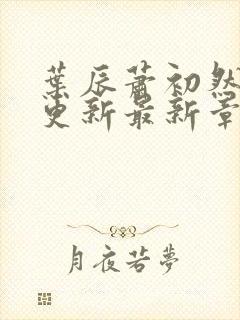 葉辰蕭初然
更新最新章
月夜若夢